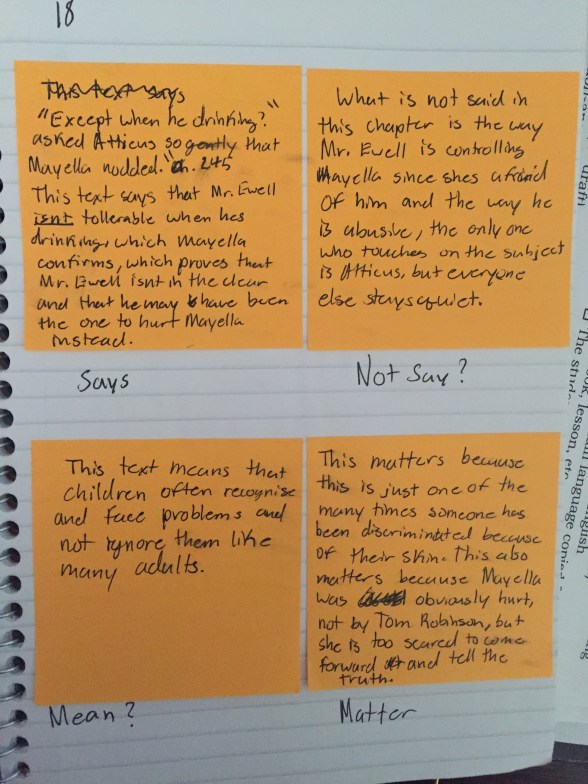 18
This text says
"Except when he drinking?"
asked Atticus so gently that
Mayella nodded." 245
This text says that Mr. Ewell
isnt tollerable when hes
drinking, which Mayella
confirms, which proves that
Mr. Ewell isnt in the clear
and that he may have been
the one to hurt Mayella
instead.
Says
What is not said in
this chapter is the way
Mr. Ewell is controlling
Mayella since shes afraid
Of him and the way he
is abusive, the only one
who touches on the subject
is Atticus, but everyone
else stays quiet.
Not Say?
This text means that
children often recognise
and face problems and
not ignore them like
many adults.
Mean?
This matters because
this is just one of the
many times someone has
been discriminated because
of their skin. This also
matters because Mayella
was obviously hurt,
not by Tom Robinson, but
she is too scared to come
forward and tell the
truth.
Matter
The stude
lesson, etc
language
nglish